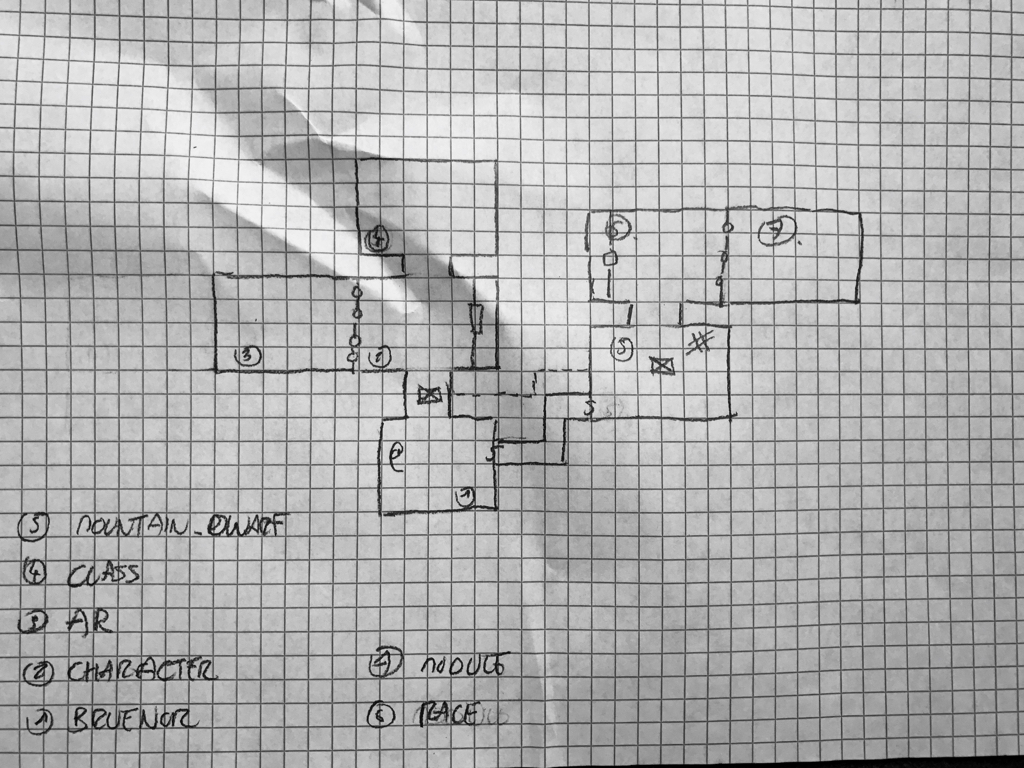 ⑥ ⑦
④
⑤ #
③ ②
S
@ S
①
⑤ MOUNTAIN_DWARF
④ CLASS
③ AR
② CHARACTER
① BRUENOR
⑦ MODULE
⑥ RACE